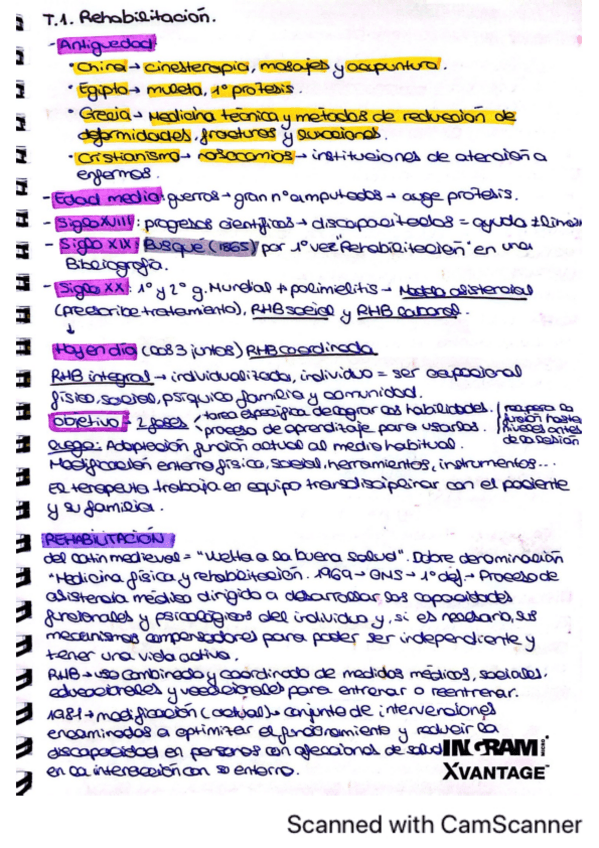 T.1. Rehabilitación.
- Antiguedad
· China → cinesiterapia, masajes y acupuntura.
· Egipto → muleta, 1º protesis.
· Grecia → Medicina técnica y metodos de reducción de
deformidades, fracturas y luxaciones.
· Cristianismo → nosocomios → instituciones de atención a
enfermos.
- Edad media: guerras → gran nº amputados → auge protesis.
- Siglo XVIII: progresos científicos → discapacitados = ayuda
- Siglo XIX: Busqué (1865) por 1º vez "Rehabilitación" en una
Bibliografía.
- Siglo XX: 1º y 2º g. Mundial + polimielitis → Modelo asistencial
(prescribe tratamiento), RHB social y RHB laboral.
↓
Hoy en día (los 3 juntos) RHB coordinada
RHB integral → individualizada, individuo = ser ocupacional
físico, social, psíquico, familia y comunidad.
Objetivo = 2 fases tarea específica de lograr las habilidades.
proceso de aprendizaje para usarlas.
función hasta
niveles antes
de la lesión
Luego: Adaptación función actual al medio habitual.
Modificación entorno físico, social, herramientas, instrumentos...
El terapeuta trabaja en equipo transdisciplinar con el paciente
y su familia.
REHABILITACIÓN
del latin medieval = "Vuelta a la buena salud". Doble denominación
"Medicina física y rehabilitación. 1969 → OMS → 1º def. → Proceso de
asistencia médica dirigido a desarrollar las capacidades
funcionales y psicológicas del individuo y, si es necesario, sus
mecanismos compensadores para poder ser independiente y
tener una vida activa.
RHB → uso combinado y coordinado de medidas médicas, sociales.
educacionales y vocacionales para entrenar o reentrenar.
1981 → modificación (actual) → conjunto de intervenciones
encaminadas a optimizar el funcionamiento y reducir la
discapacidad en personas con afecciones de salud
en la interacción con su entorno.
INGRAM MICRO
XVANTAGE
Scanned with CamScanner